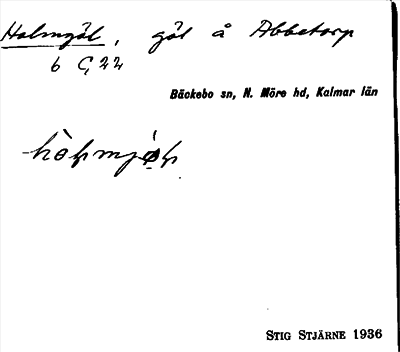 Holmgöl, göl å Abbetorp
6 G 22
Bäckebo sn, N. Möre hd, Kalmar län
STIG STJÄRNE 1936